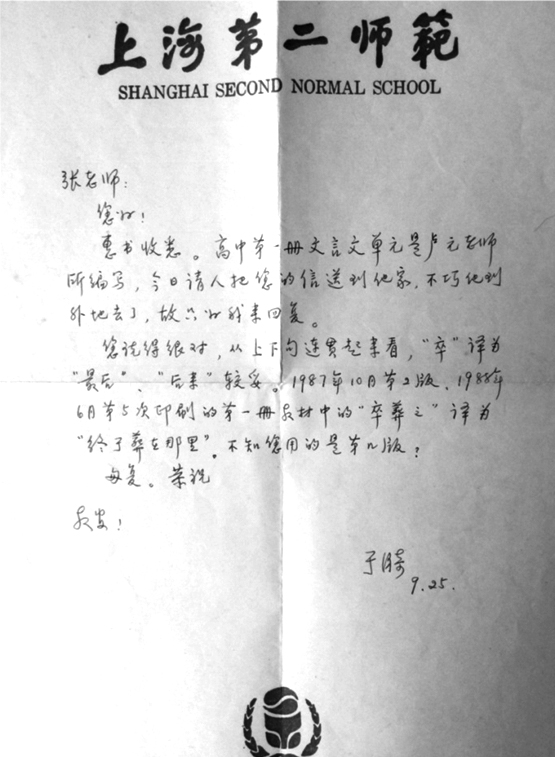 上海第二师範
SHANGHAI SECOND NORMAL SCHOOL
张老师:
您好!
惠书收悉。高中第一册文言文单元是卢元老师
所编写,今日请人把您的信送到他家,不巧他到
外地去了,故只好我来回复。
您说得很对,从上下句连贯起来看,“卒”译为
“最后”、“后来”较妥。1987年10月第2版、1988年
6月第5次印刷的第一册教材中的“卒葬之”译为
“终于葬在那里”。不知您用的是第几版?
匆复。荣祝
教安!
于漪
9.25.